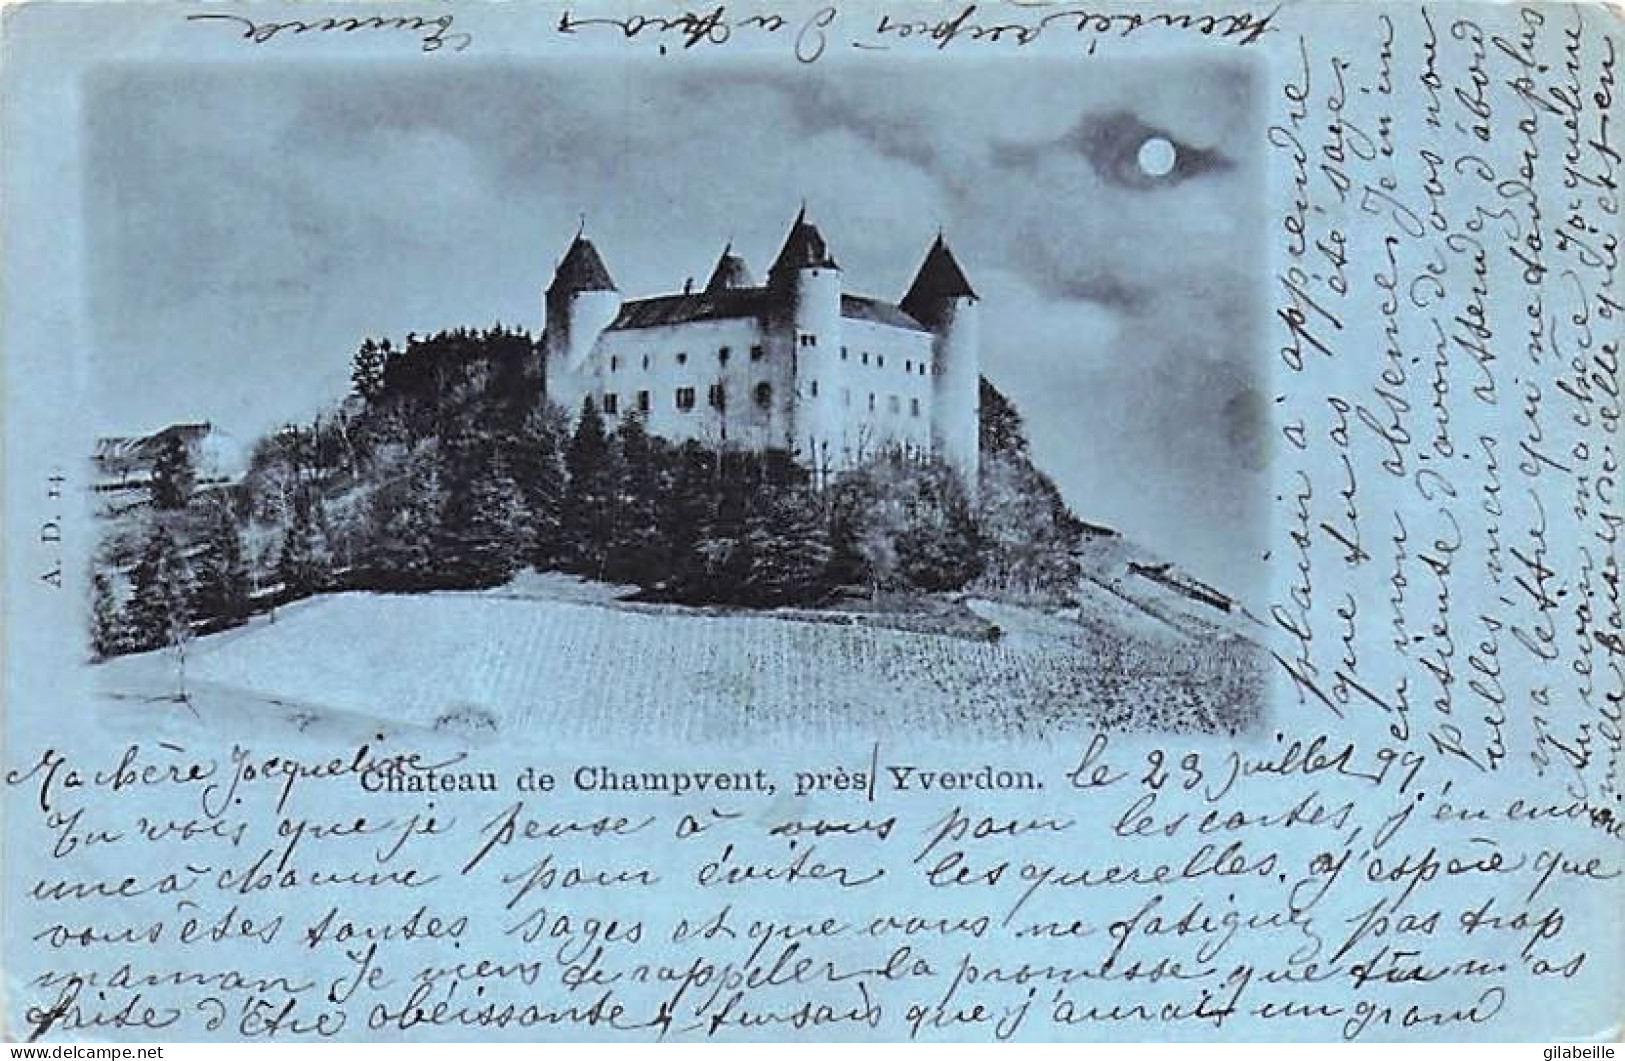 A. D. 14
Château de Champvent, près Yverdon.
le 23 juillet 99
Ma chère Jacqueline
Tu vois que je pense à vous pour les cartes, j'en envoie
une à chacune pour éviter les querelles. J'espère que
vous êtes toutes sages et que vous ne fatiguez pas trop
maman Je viens te rappeler la promesse que tu m'as
faite d'être obéissante, tu sais que j'aurais un grand
plaisir à apprendre
que tu as été sage
en mon absence Je m'im
patiente d'avoir de vos nou
velles, mais attendez d'abord
ma lettre qui ne tardera plus
Au revoir ma chère Jacqueline
mille baisers de celle qui est en
pensée